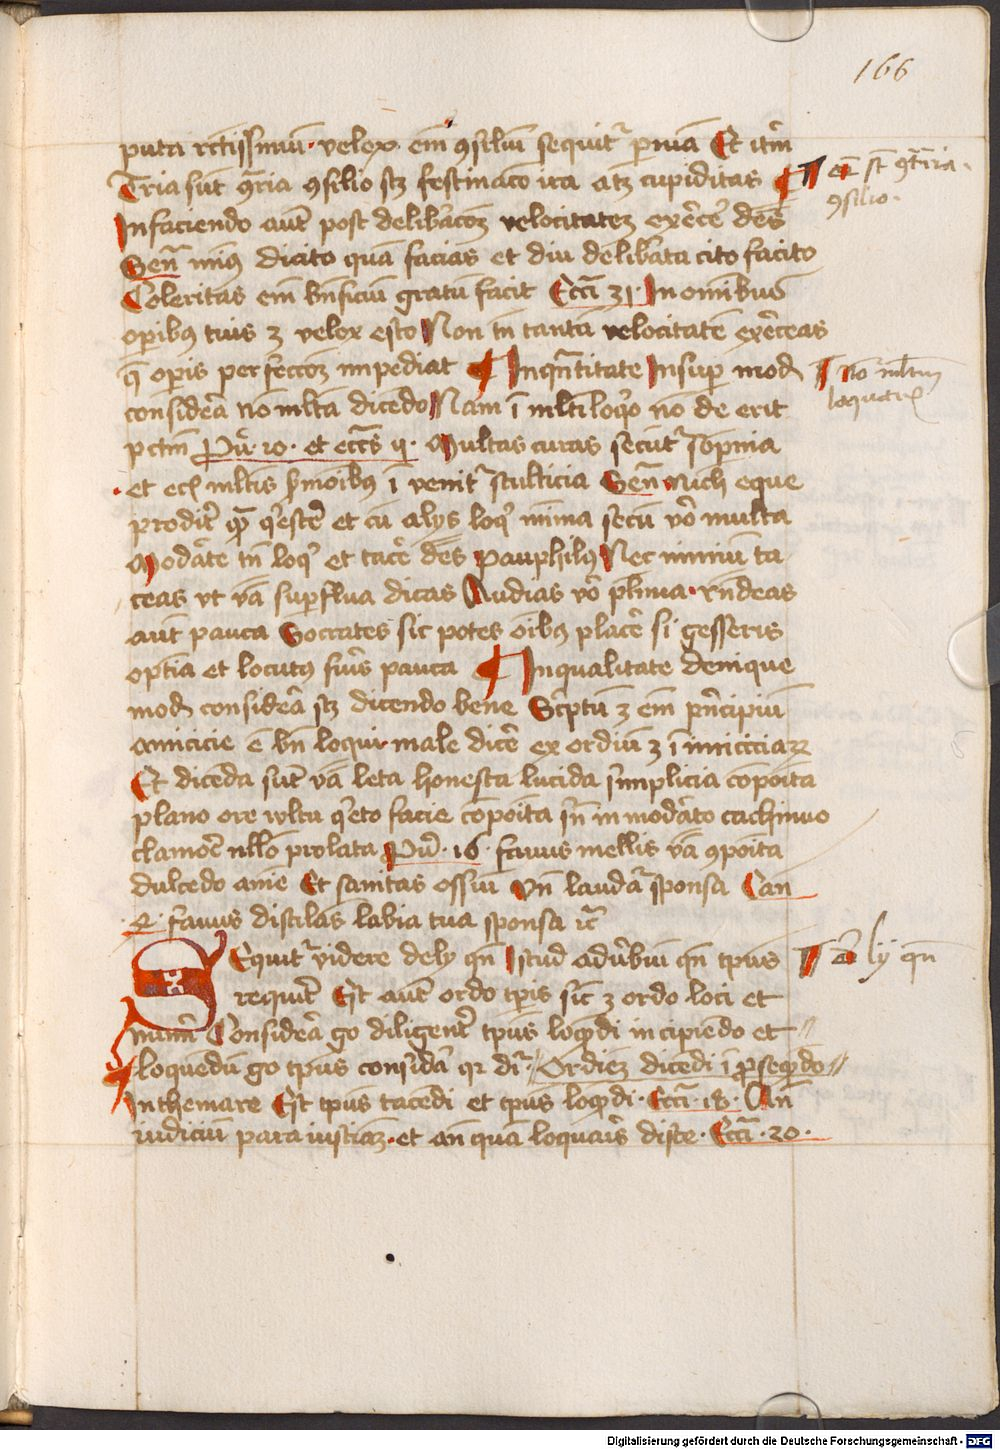 166
puta rectissimum · velox em̄ ꝯsiliū sequit᷑ pe̅nia Et itm̄
Tria sūt ꝯͣria ꝯsilio scꝫ festinaco ira atqꝫ cupiditas
¶ ec̄ st̄ ꝯt̄ria · ꝯsilio ·
In faciendo aut̄ post delib̄acōꝫ velocitateꝫ exerc̄e dēs
Sen̄ minꝰ dicito quā facias et diu delib̄ata cito facito
Celeritas em̄ bn̄ficiū gratū facit Ecci 31 · In omnibus
operibꝰ tuis ꝫ velox esto Non tn̄ tantā velocitatē exerceas
ꝙ operis perfeccōꝫ impediat ¶ In qn̄titate Insuꝑ modꝫ
¶ nō mltm̄ loquaris
consid̄a nō mlta dicēdo Nam ī mltiloqͦo nō de erit
pctm̄ Pu͛ 10 · et eccēs q · Multas curas secūt᷑ sopnia
· et ecꝫ mltis sermōibꝰ ī venit᷑ stulticia Sen̄ nich eque
prodit᷑ ꝙ qͥescere et cū alys loqͥ mīma secū v̄o multa
Mod̄ate tn̄ loqͥ et tac̄e dēs Pauphilꝰ Nec nimiū ta
ceas vt v̄a suꝑflua dicas Audias v̄o pl̄ima · rn̄deas
aut̄ pauca Socrates sic potes oībꝰ plac̄e si gesseris
optīa et locutꝰ fūis pauca ¶ In qualitate denique
modꝫ consid̄a scꝫ dicendo bene Scp̄tū ꝫ em̄ pn̄cipiū
amicicie ē bn̄ loqui · male dic̄e ex ordiū ꝫ ī imiciciaꝝ
Et dicēda sūt v̄a leta honesta lucida simplicia cōpoīta
plano ore wltu qͥeto facie cōpoīta sn̄ in mod̄ato cachinno
clamoē nllo prolata Pū · 16 · favus mellis v̄a ꝯpoīta
dulcedo anīe Et sanitas ossiū vn̄ laudat᷑ sponsa Can
· 4 · favus distilās labia tua sponsa ꝛc̄
Sequit᷑ videre de ly qn̄ Istud adv̄biū qn̄ tꝑus
¶ de ly qn̄
requir̄ Est aut̄ ordo tꝑis sic̄ ꝫ ordo loci et
num̄i Consid̄a g͛o diligent̄ tꝑus loq̄ndi incipiēdo et
loquēdū g͛o tꝑus consid̄a qꝛ dr̄ · // Ordieꝫ dicēdi ī ꝑseq̄ndo //
In themare Est tꝑus tacēdi et tꝑus loq̄ndi · Ecci · 18 · An̄
iudiciū para iusticiaꝫ · et an̄ quā loquaris disce · Ecci · 20 ·
Digitalisierung gefördert durch die Deutsche Forschungsgemeinschaft - DFG